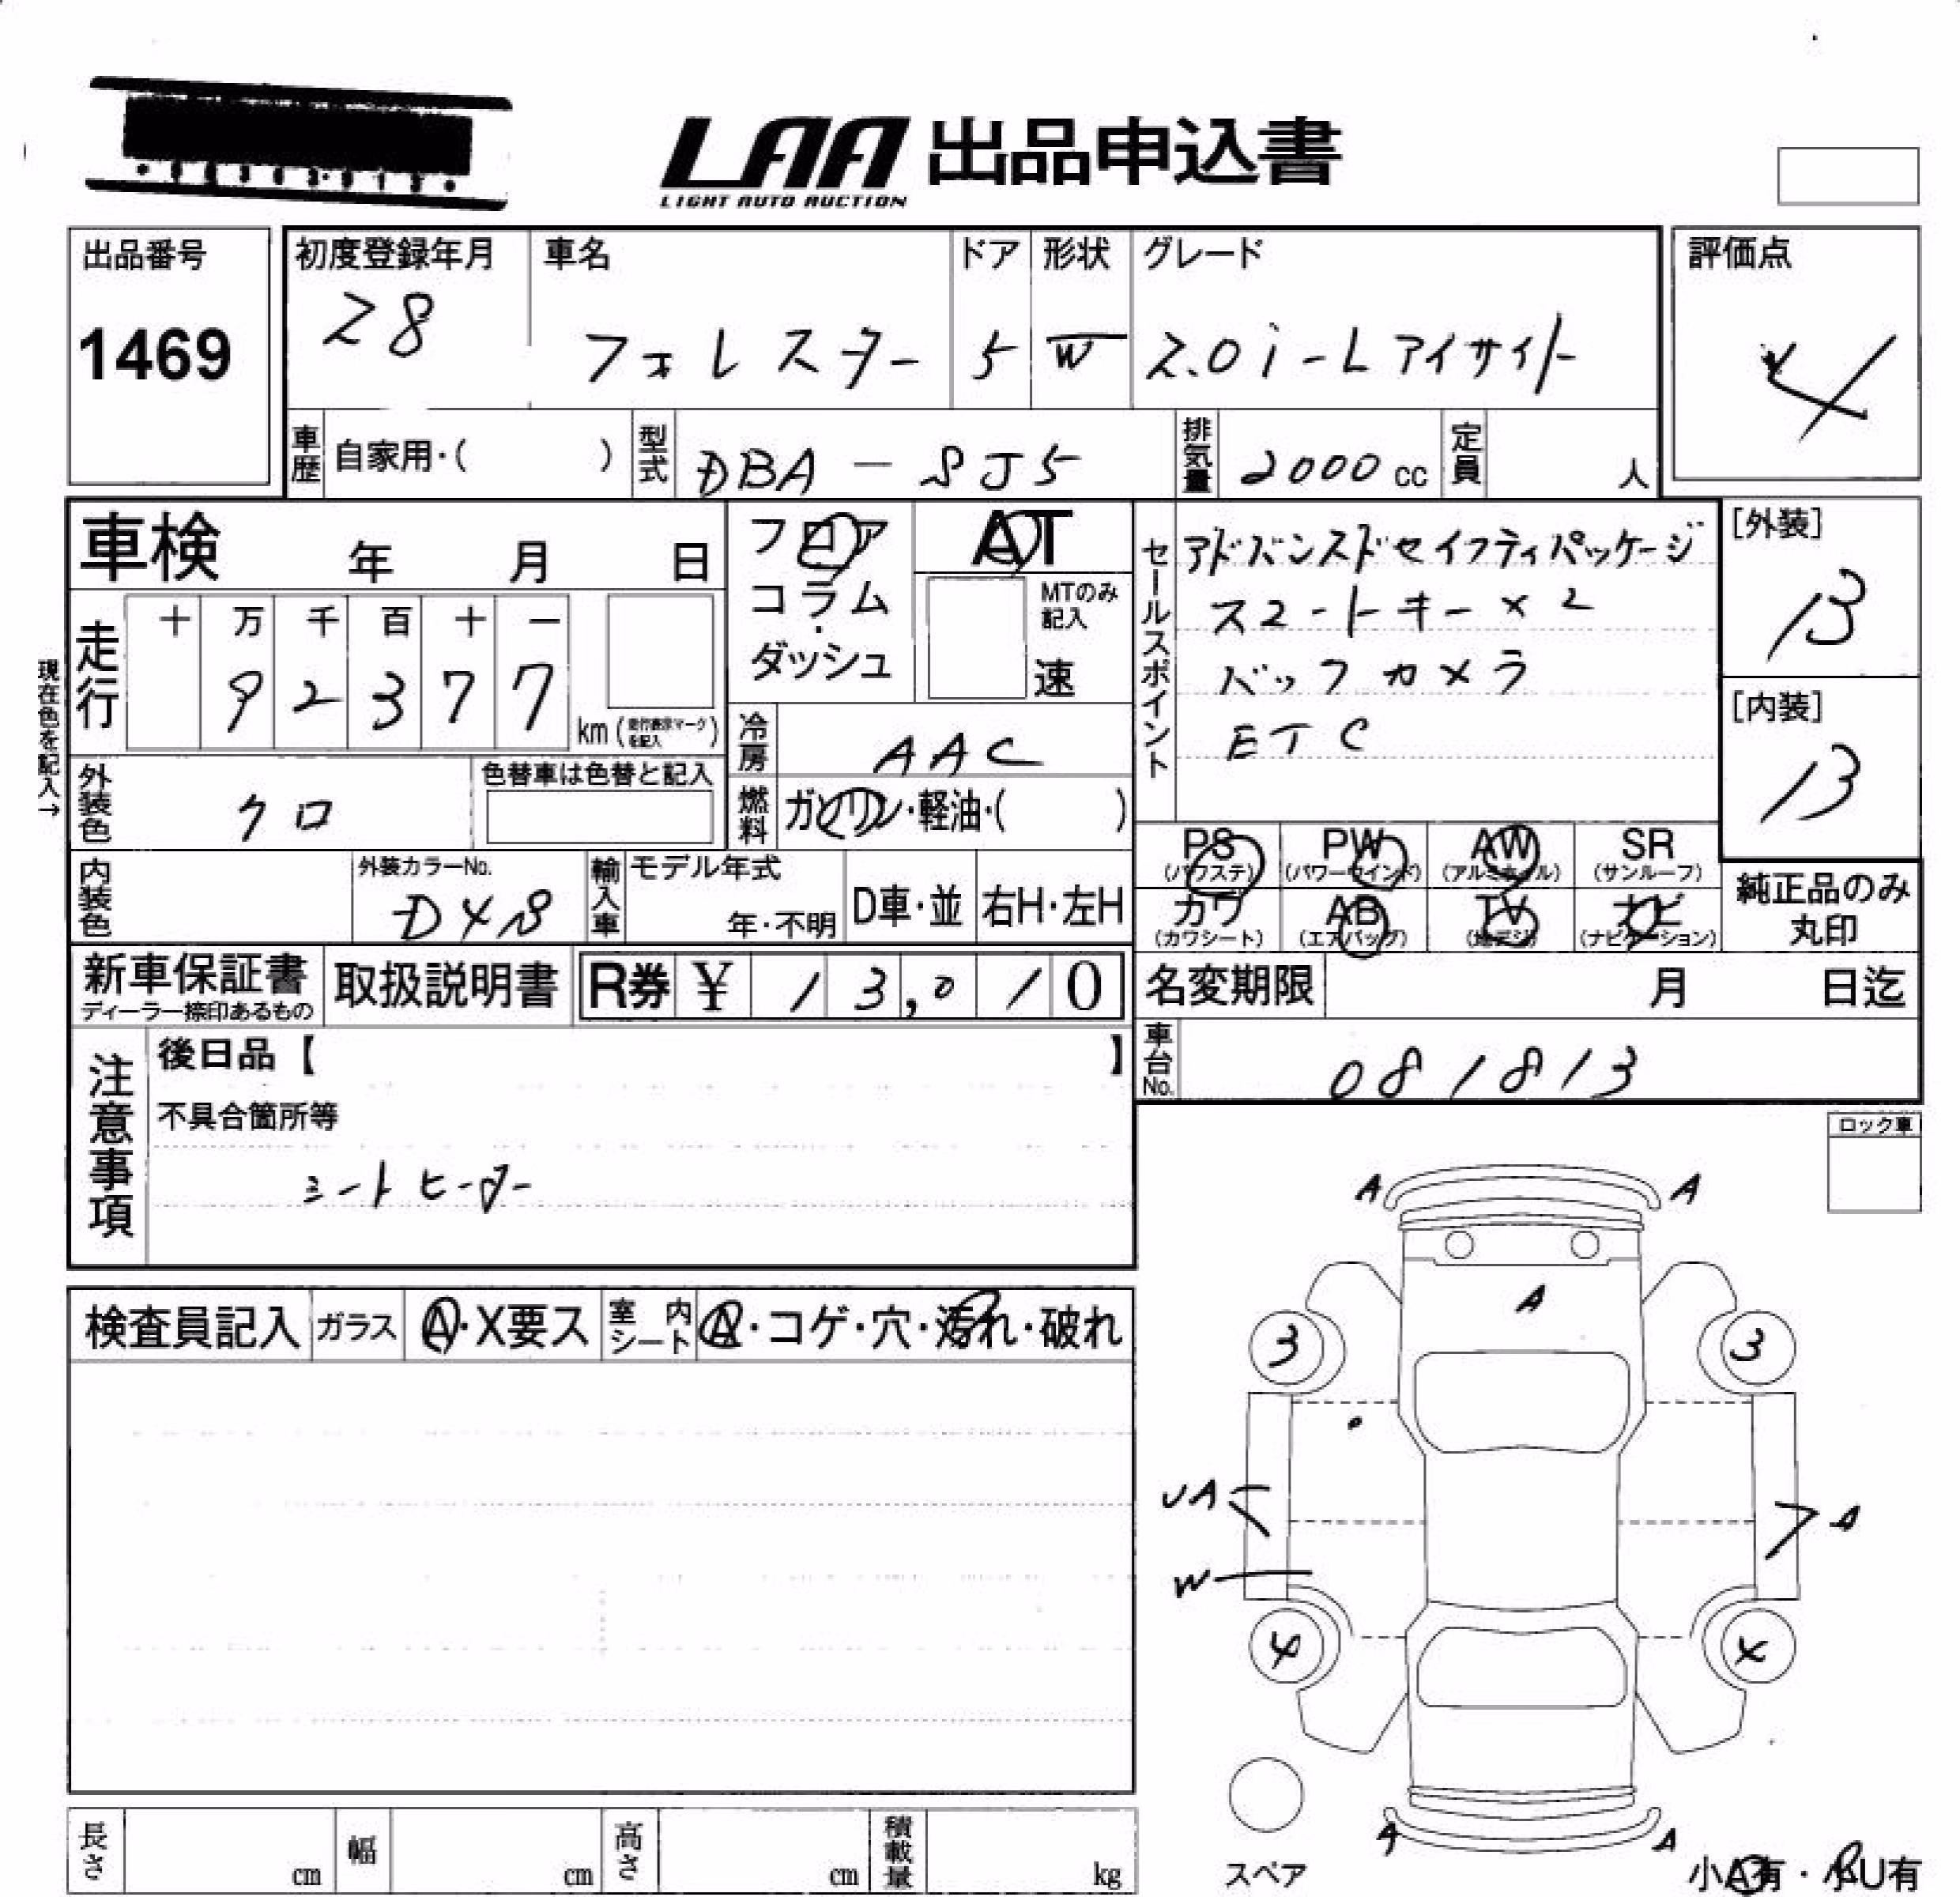 LAA 出品申込書
LIGHT AUTO AUCTION
出品番号
1469
初度登録年月
28
車名
フォレスター
ドア
5
形状
W
グレード
2.0i-Lアイサイト
評価点
4
車歴 自家用・( )
型式 DBA-SJ5
排気量 2000 cc
定員 人
車検 年 月 日
フロア
コラム
・
ダッシュ
AT
MTのみ
記入
速
セールスポイント
アドバンスドセイフティパッケージ
スマートキー×2
バックカメラ
ETC
[外装]
13
[内装]
13
現在色を記入→
走行
十 万 千 百 十 一
9 2 3 7 7
km (走行表示マークを記入)
冷房 AAC
燃料 ガソリン・軽油・( )
外装色 クロ
色替車は色替と記入
内装色
外装カラーNo.
D4S
輸入車
モデル年式
年・不明
D車・並
右H・左H
PS (パワステ)
PW (パワーウインド)
AW (アルミホイル)
SR (サンルーフ)
カワ (カワシート)
AB (エアバッグ)
TV (地デジ)
ナビ (ナビゲーション)
純正品のみ
丸印
新車保証書
ディーラー捺印あるもの
取扱説明書
R券 ¥ 13,010
名変期限 月 日迄
車台No. 081813
注意事項
後日品【 】
不具合箇所等
シートヒーター
ロック車
検査員記入
ガラス A・X要ス
室内シート A・コゲ・穴・汚れ・破れ
A A
A
3 3
UA A
W
4 4
A A
スペア
小A有・小U有
長さ cm
幅 cm
高さ cm
積載量 kg